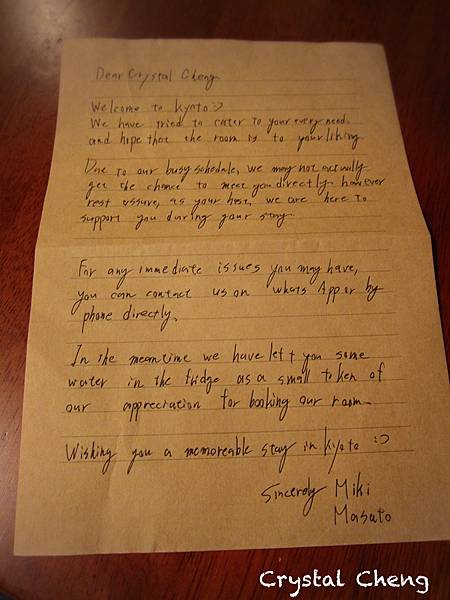 Dear Crystal Cheng
Welcome to Kyoto :)
We have tried to cater to your every need.
and hope that the room is to your liking
Due to our busy schedule, we may not actually
get the chance to meet you directly. however
rest assure, as your host, we are here to
support you during your stay.
For any immediate issues you may have,
you can contact us on whats App or by
phone directly.
In the meantime we have left you some
water in the fridge as a small token of
our appreciation for booking our room.
Wishing you a memoreable stay in Kyoto :)
Sincerely Miki
Masato
Crystal Cheng